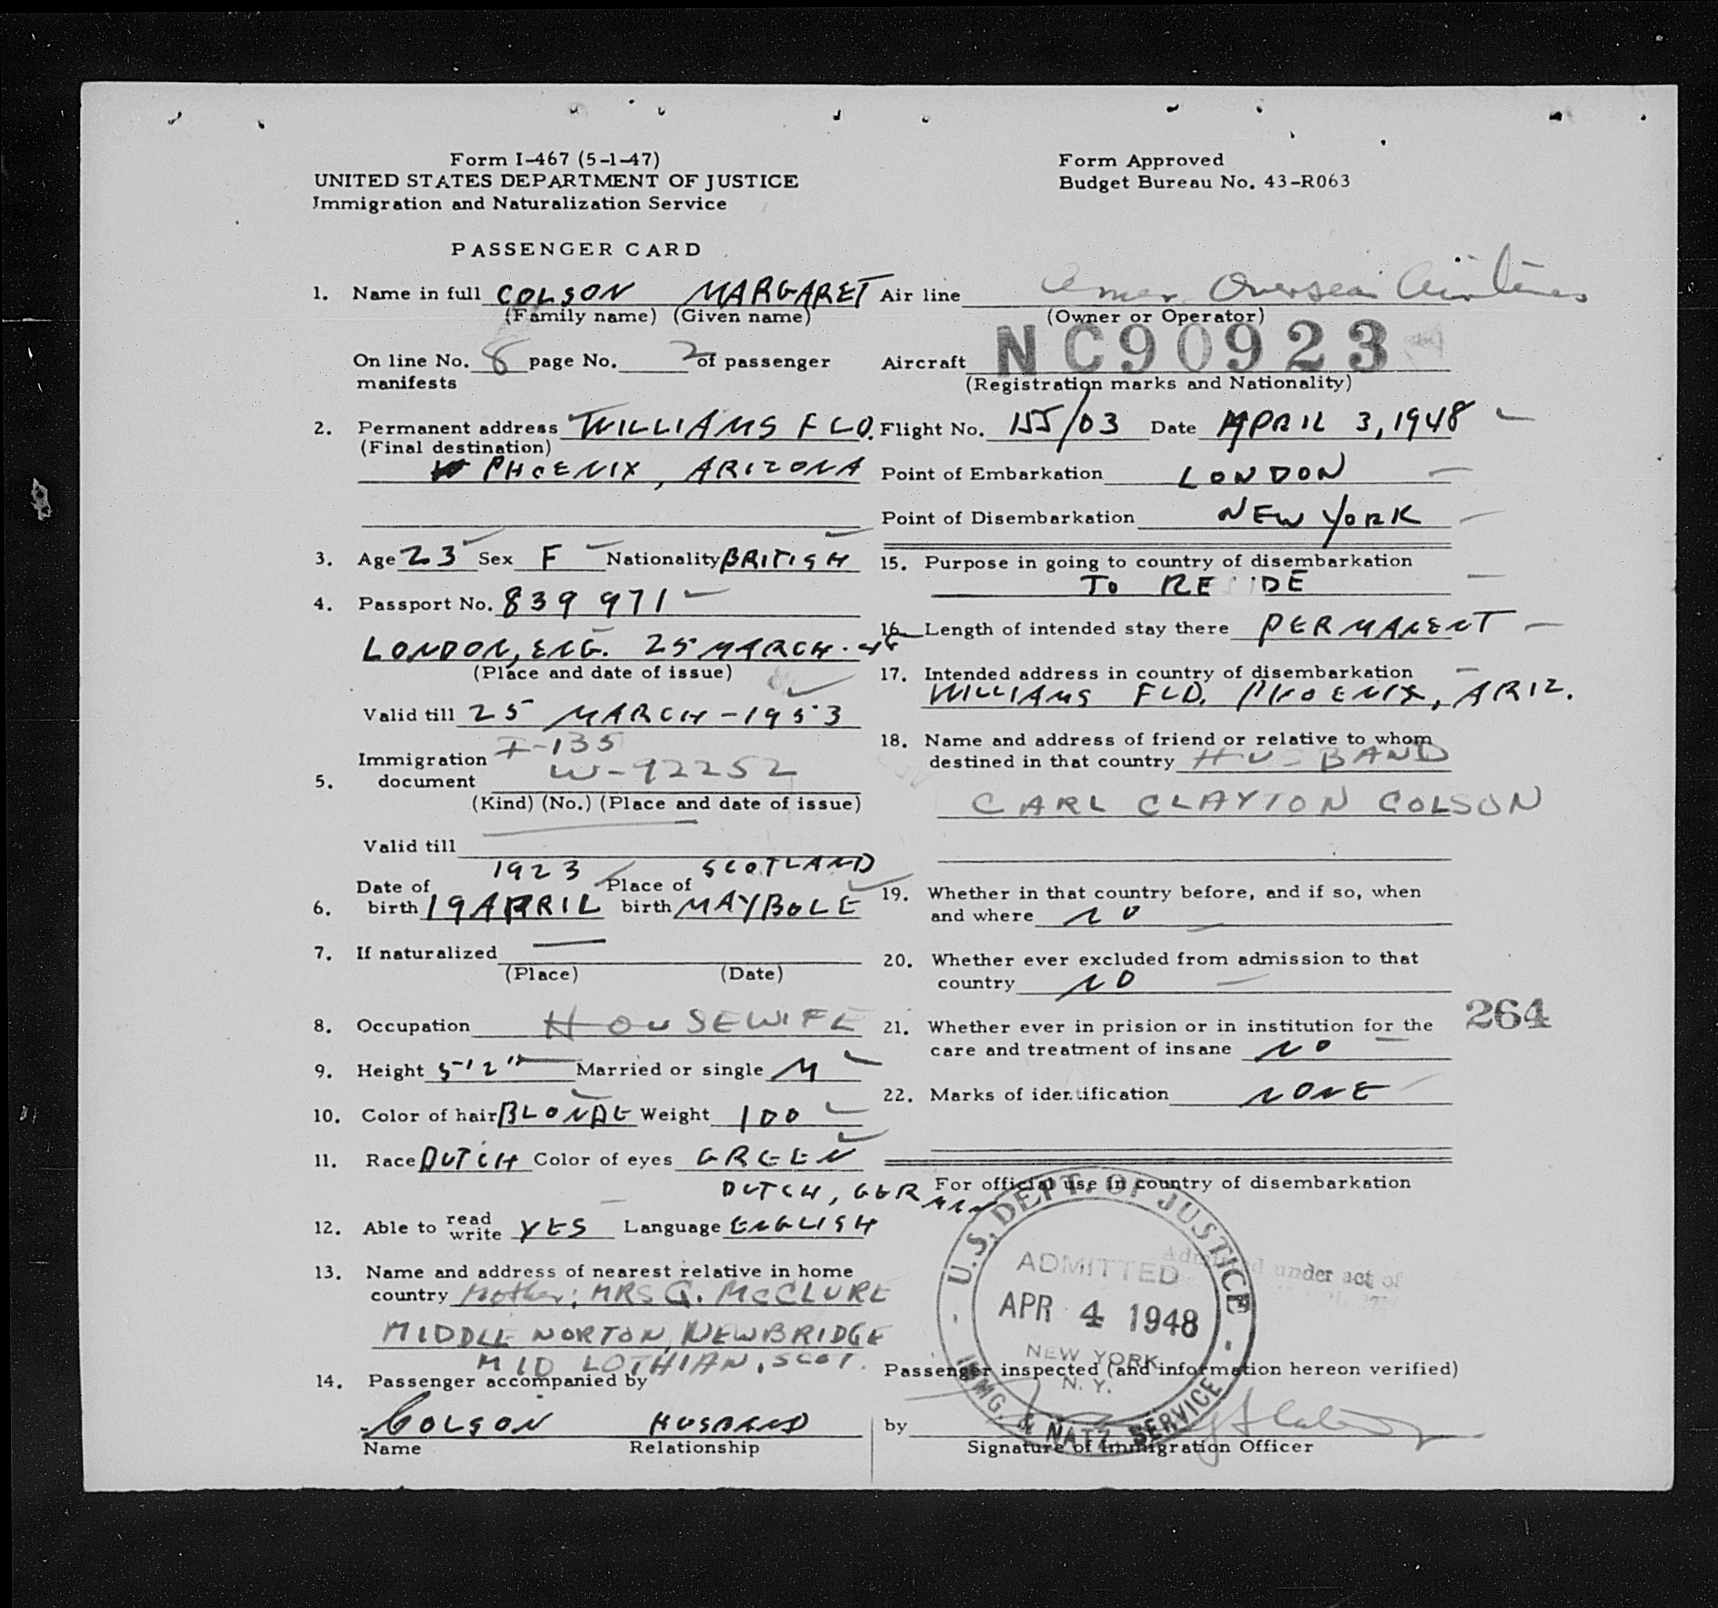 Form I-467 (5-1-47)
UNITED STATES DEPARTMENT OF JUSTICE
Immigration and Naturalization Service
Form Approved
Budget Bureau No. 43-R063
PASSENGER CARD
1. Name in full COLSON MARGARET
(Family name) (Given name)
On line No. 8 page No. 2 of passenger
manifests
2. Permanent address WILLIAMS FLD.
(Final destination)
PHOENIX, ARIZONA
3. Age 23 Sex F Nationality BRITISH
4. Passport No. 839 971
LONDON, ENG. 25 MARCH - 48
(Place and date of issue)
Valid till 25 MARCH - 1953
Immigration I-135
5. document W-92252
(Kind) (No.) (Place and date of issue)
Valid till
1923 SCOTLAND
Date of Place of
6. birth 19 APRIL birth MAYBOLE
7. If naturalized —
(Place) (Date)
8. Occupation HOUSEWIFE
9. Height 5'2" Married or single M
10. Color of hair BLONDE Weight 100
11. Race DUTCH Color of eyes GREEN
DUTCH, GERMAN
12. Able to read write YES Language ENGLISH
13. Name and address of nearest relative in home
country Mother: MRS G. McCLURE
MIDDLE NORTON, NEWBRIDGE
MID LOTHIAN, SCOT.
14. Passenger accompanied by
COLSON HUSBAND
Name Relationship
Air line Amer. Overseas Airlines
(Owner or Operator)
Aircraft NC90923
(Registration marks and Nationality)
Flight No. 155/03 Date APRIL 3, 1948
Point of Embarkation LONDON
Point of Disembarkation NEW YORK
15. Purpose in going to country of disembarkation
TO RESIDE
16. Length of intended stay there PERMANENT
17. Intended address in country of disembarkation
WILLIAMS FLD. PHOENIX, ARIZ.
18. Name and address of friend or relative to whom
destined in that country HUSBAND
CARL CLAYTON COLSON
19. Whether in that country before, and if so, when
and where NO
20. Whether ever excluded from admission to that
country NO
21. Whether ever in prision or in institution for the
care and treatment of insane NO
264
22. Marks of identification NONE
For official use in country of disembarkation
U.S. DEPT. OF JUSTICE
ADMITTED
APR 4 1948
NEW YORK
N. Y.
IMMG. & NATZ. SERVICE
Admitted under act of
Passenger inspected (and information hereon verified)
by
Signature of Immigration Officer